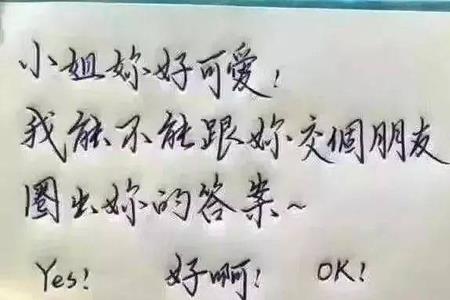 小姐妳好可爱!
我能不能跟妳交個朋友
圈出妳的答案~
Yes! 好啊! OK!